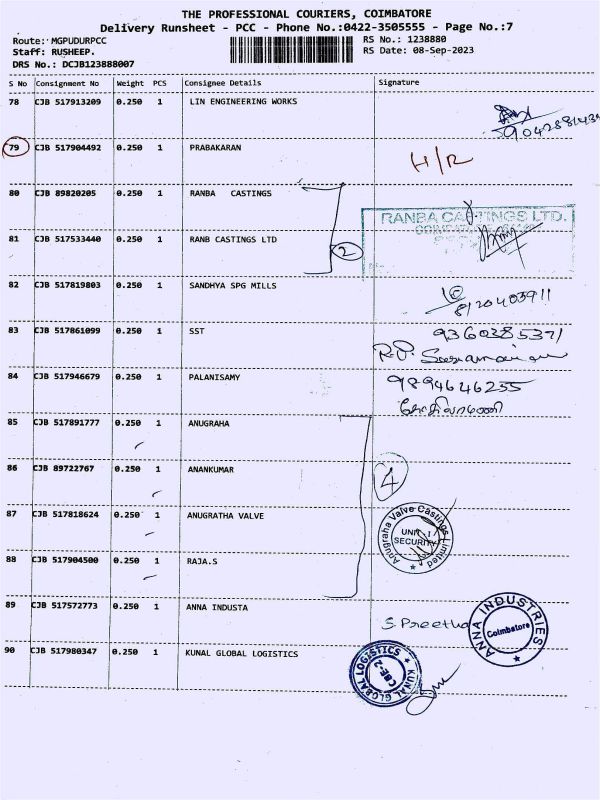 THE PROFESSIONAL COURIERS, COIMBATORE
Delivery Runsheet - PCC - Phone No.:0422-3505555 - Page No.:7
Route: MGPUDURPCC RS No.: 1238880
Staff: RUSHEEP. RS Date: 08-Sep-2023
DRS No.: DCJB123888007
S No Consignment No Weight PCS Consignee Details Signature
78 CJB 517913209 0.250 1 LIN ENGINEERING WORKS
79 CJB 517904492 0.250 1 PRABAKARAN H/R
80 CJB 89820205 0.250 1 RANBA CASTINGS
RANBA CASTINGS LTD.
81 CJB 517533440 0.250 1 RANB CASTINGS LTD 2
82 CJB 517819803 0.250 1 SANDHYA SPG MILLS
8120403911
83 CJB 517861099 0.250 1 SST 9360385371
84 CJB 517946679 0.250 1 PALANISAMY 9894646255
85 CJB 517891777 0.250 1 ANUGRAHA
86 CJB 89722767 0.250 1 ANANKUMAR 4
87 CJB 517818624 0.250 1 ANUGRATHA VALVE
Anugraha Valve Castings Limited
UNIT I
SECURITY
88 CJB 517904500 0.250 1 RAJA.S
89 CJB 517572773 0.250 1 ANNA INDUSTA S. Preetha
ANNA INDUSTRIES
Coimbatore
90 CJB 517980347 0.250 1 KUNAL GLOBAL LOGISTICS
KUNAL GLOBAL LOGISTICS
CBE-2